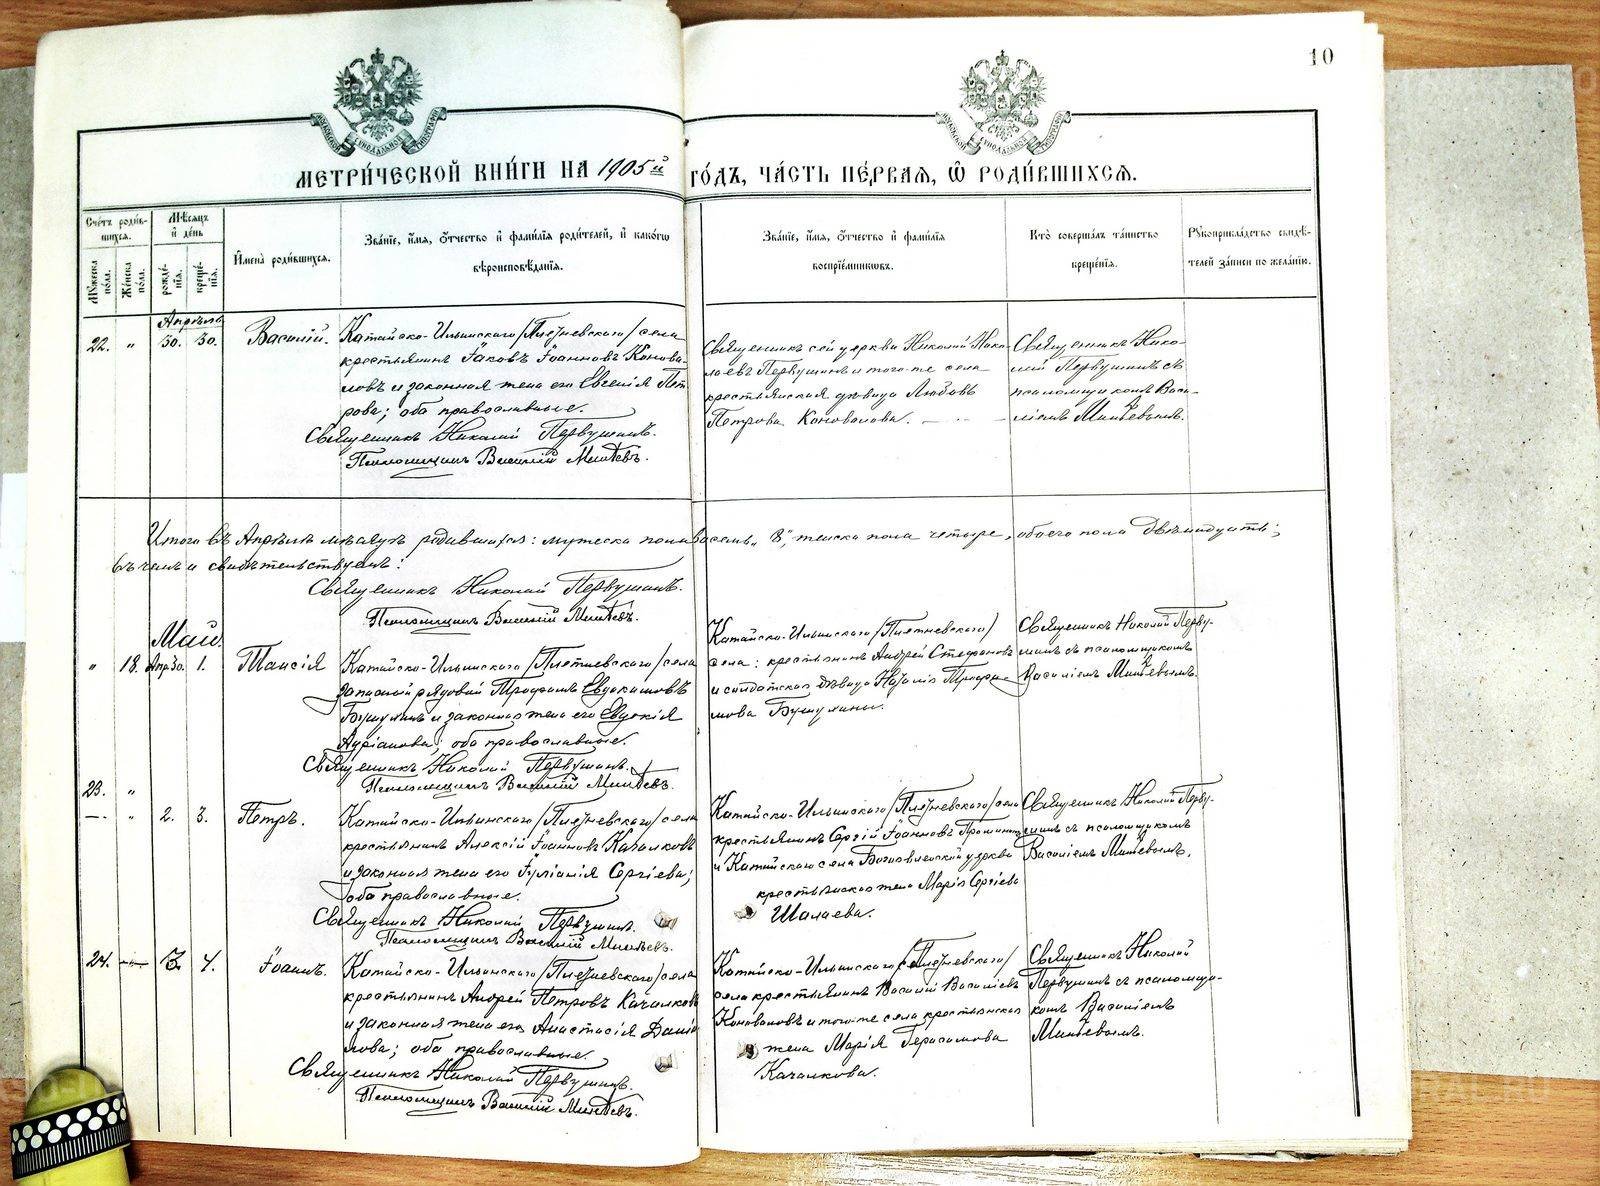 10
МЕТРИ́ЧЕСКОЙ КНИ́ГИ НА 1905й ГО́ДЪ, ЧА́СТЬ ПЕ́РВАЯ, Ѡ РОДИ́ВШИХСѦ.
Сче́тъ роди́вшихся.
Мѣ́сяцъ и́ де́нь
И҆мена̀ роди́вшихся.
Зва́нїе, и҆́мя, ѻ҆́тчество и҆ фами́лїя роди́телей, и҆ како́гѡ
вѣроисповѣ́данїя.
Зва́нїе, и҆́мя, ѻ҆́тчество и҆ фами́лїя
воспрїе́мниковъ.
Кто̀ соверша́лъ та́инство
креще́нїя.
Рꙋкоприкла́дство свидѣ́-
телей за́писи по жела́нїю.
Мꙋ́жеска по́ла.
Же́нска по́ла.
рожде́нїя.
креще́нїя.
Апрѣль
22. " 30. 30. Василій.
Катайско-Ильинскаго /Плетневскаго/ села
крестьянинъ Іаковъ Іоанновъ Конова-
ловъ и законная жена его Евгенія Пет
рова; оба православные.
Священникъ Николай Первушинъ.
Псаломщикъ Василій Минѣевъ.
Священникъ сей церкви Николай Нико-
лаевъ Первушинъ и того-же села
крестьянская дѣвица Любовь
Петрова Коновалова.
Священникъ Нико-
лай Первушинъ съ
псаломщикомъ Васи-
ліемъ Минѣевымъ.
Итого въ Апрѣлѣ мѣсяцѣ родившихся: мужеска пола восемь „8", женска пола четыре, обоего пола двѣнадцать;
въ чемъ и свидѣтельствуемъ:
Священникъ Николай Первушинъ.
Псаломщикъ Василій Минѣевъ.
Май.
" 18. Апр 30. 1. Таисія
Катайско-Ильинскаго /Плетневскаго/ села
запасной рядовой Трофимъ Евдокимовъ
Бушуинъ и законная жена его Евдокія
Адріанова; оба православные.
Священникъ Николай Первушинъ.
Псаломщикъ Василій Минѣевъ.
Катайско-Ильинскаго /Плетневскаго/
села: крестьянинъ Андрей Стефановъ
и солдатская дѣвица Наталія Трофи-
мова Бушуины.
Священникъ Николай Перву-
шинъ съ псаломщикомъ
Василіемъ Минѣевымъ.
23. "
— " 2. 3. Петръ.
Катайско-Ильинскаго /Плетневскаго/ села
крестьянинъ Алексій Іоанновъ Качалковъ
и законная жена его Іуліанія Сергіева;
оба православные.
Священникъ Николай Первушинъ.
Псаломщикъ Василій Минѣевъ.
Катайско-Ильинскаго /Плетневскаго/ села
крестьянинъ Сергій Іоанновъ
и Катайскаго села Богоявленской церкви
крестьянская жена Марія Сергіева
Шалаева.
Священникъ Николай Перву-
шинъ съ псаломщикомъ
Василіемъ Минѣевымъ.
24. — " — 3. 4. Іоаннъ.
Катайско-Ильинскаго /Плетневскаго/ села
крестьянинъ Андрей Петровъ Качалковъ
и законная жена его Анастасія Дани
лова; оба православные.
Священникъ Николай Первушинъ.
Псаломщикъ Василій Минѣевъ.
Катайско-Ильинскаго /Плетневскаго/
села крестьянинъ Василій Василіевъ
Коноваловъ и того-же села крестьянская
жена Марія Герасимова
Качалкова.
Священникъ Николай
Первушинъ съ псаломщи-
комъ Василіемъ
Минѣевымъ.